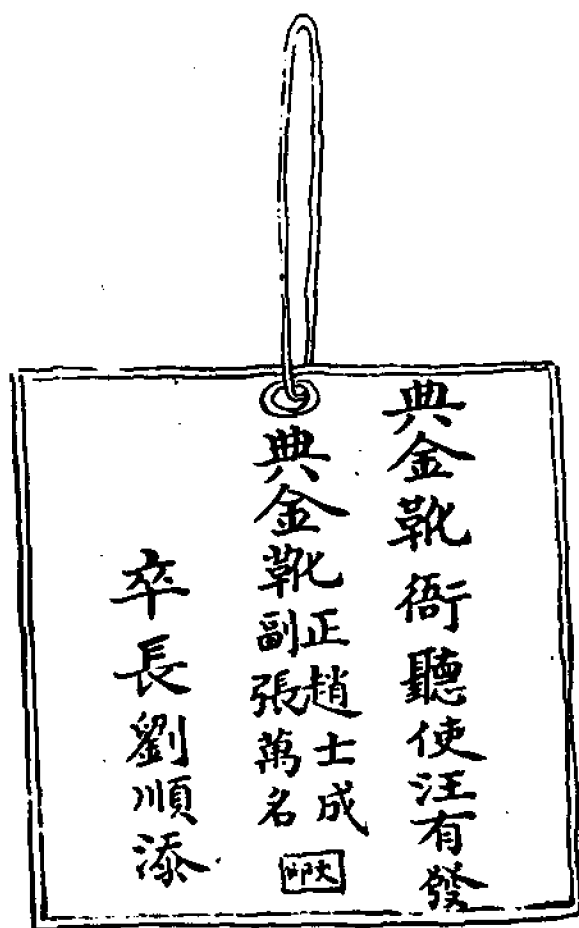 典金靴衙聽使汪有發
典金靴正趙士成
副張萬名
大印
卒長劉順添